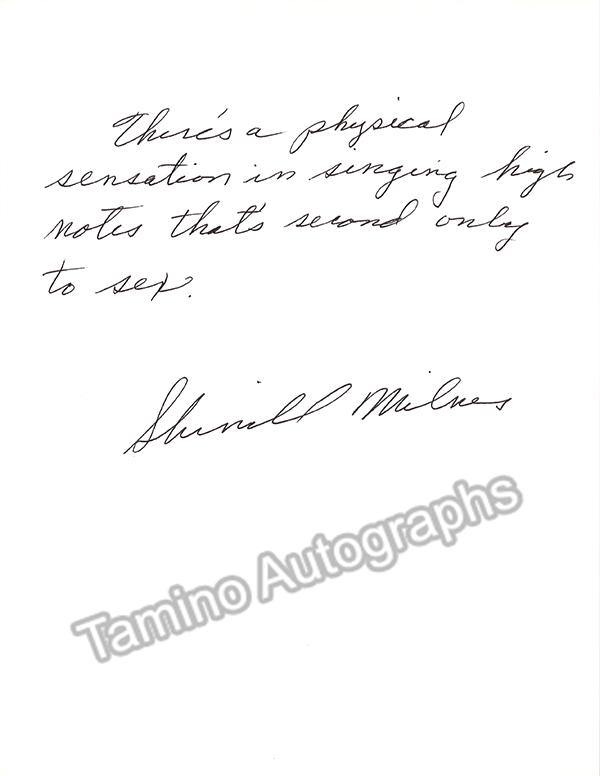 There's a physical
sensation in singing high
notes that's second only
to sex.
Sherrill Milnes
Tamino Autographs